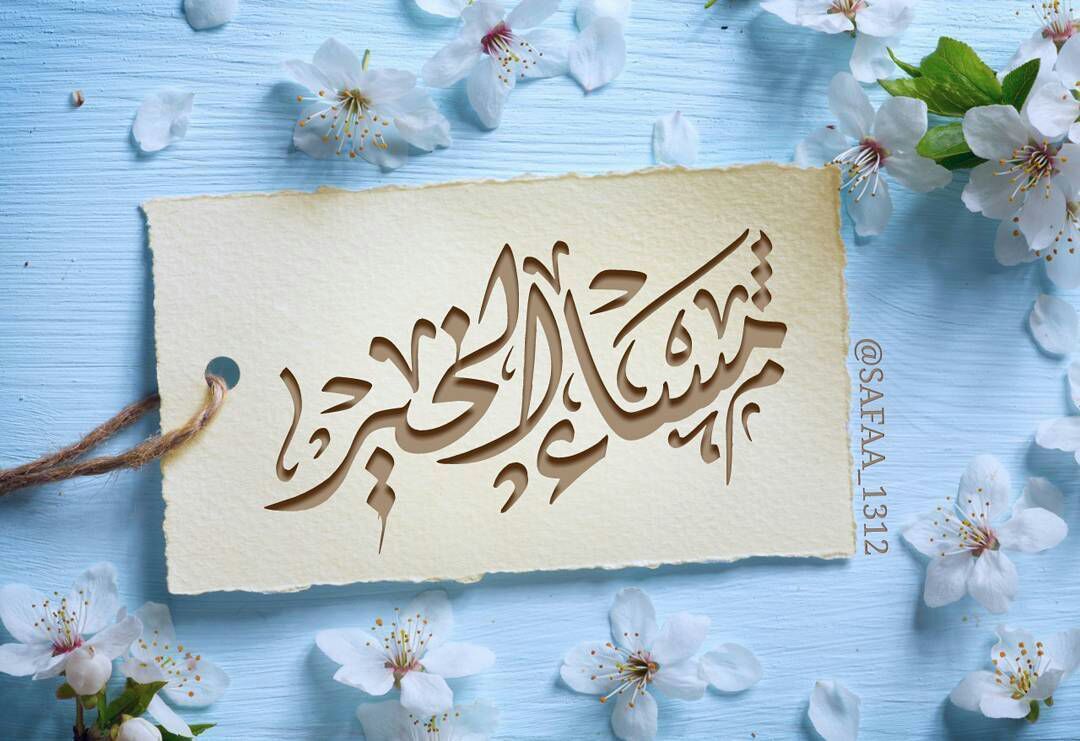 مساء الخير
@SAFAA_1312